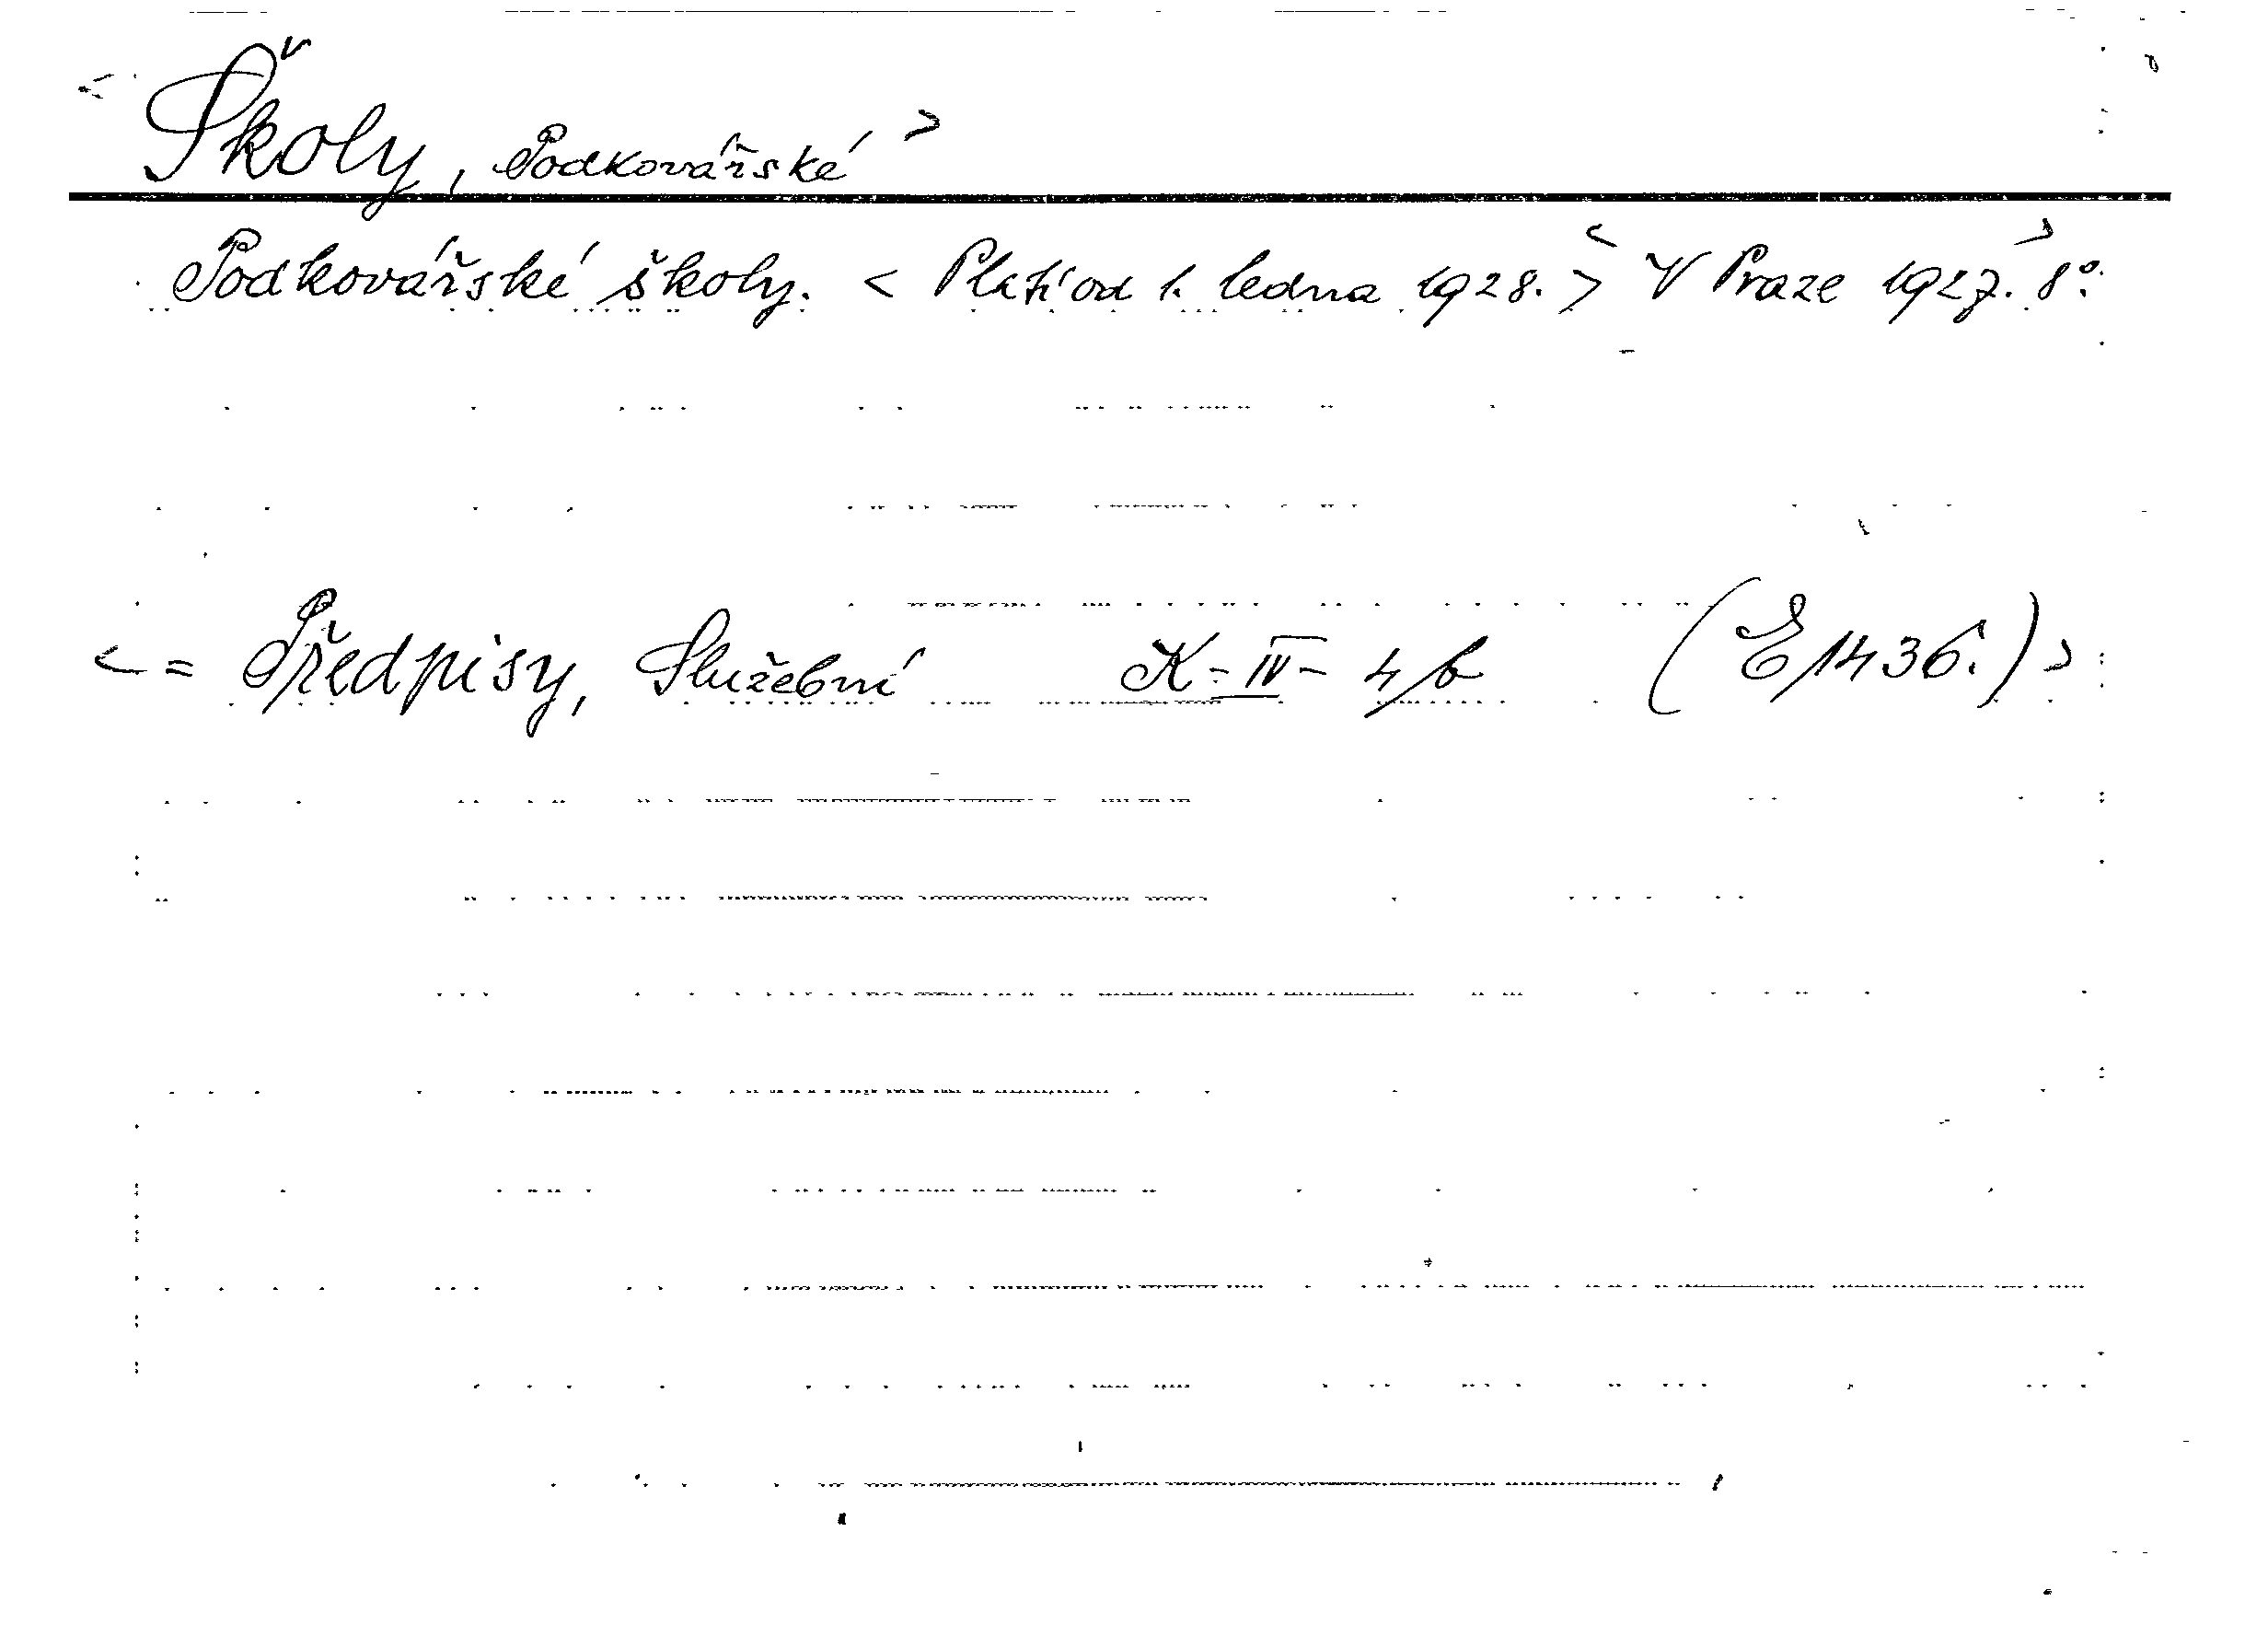 < Školy, Podkovářské >
Podkovářské školy. < Platí od 1. ledna 1928. > < V Praze 1927. > 8°.
< = Předpisy, Služební K-IV-4/b (E 1436.) >